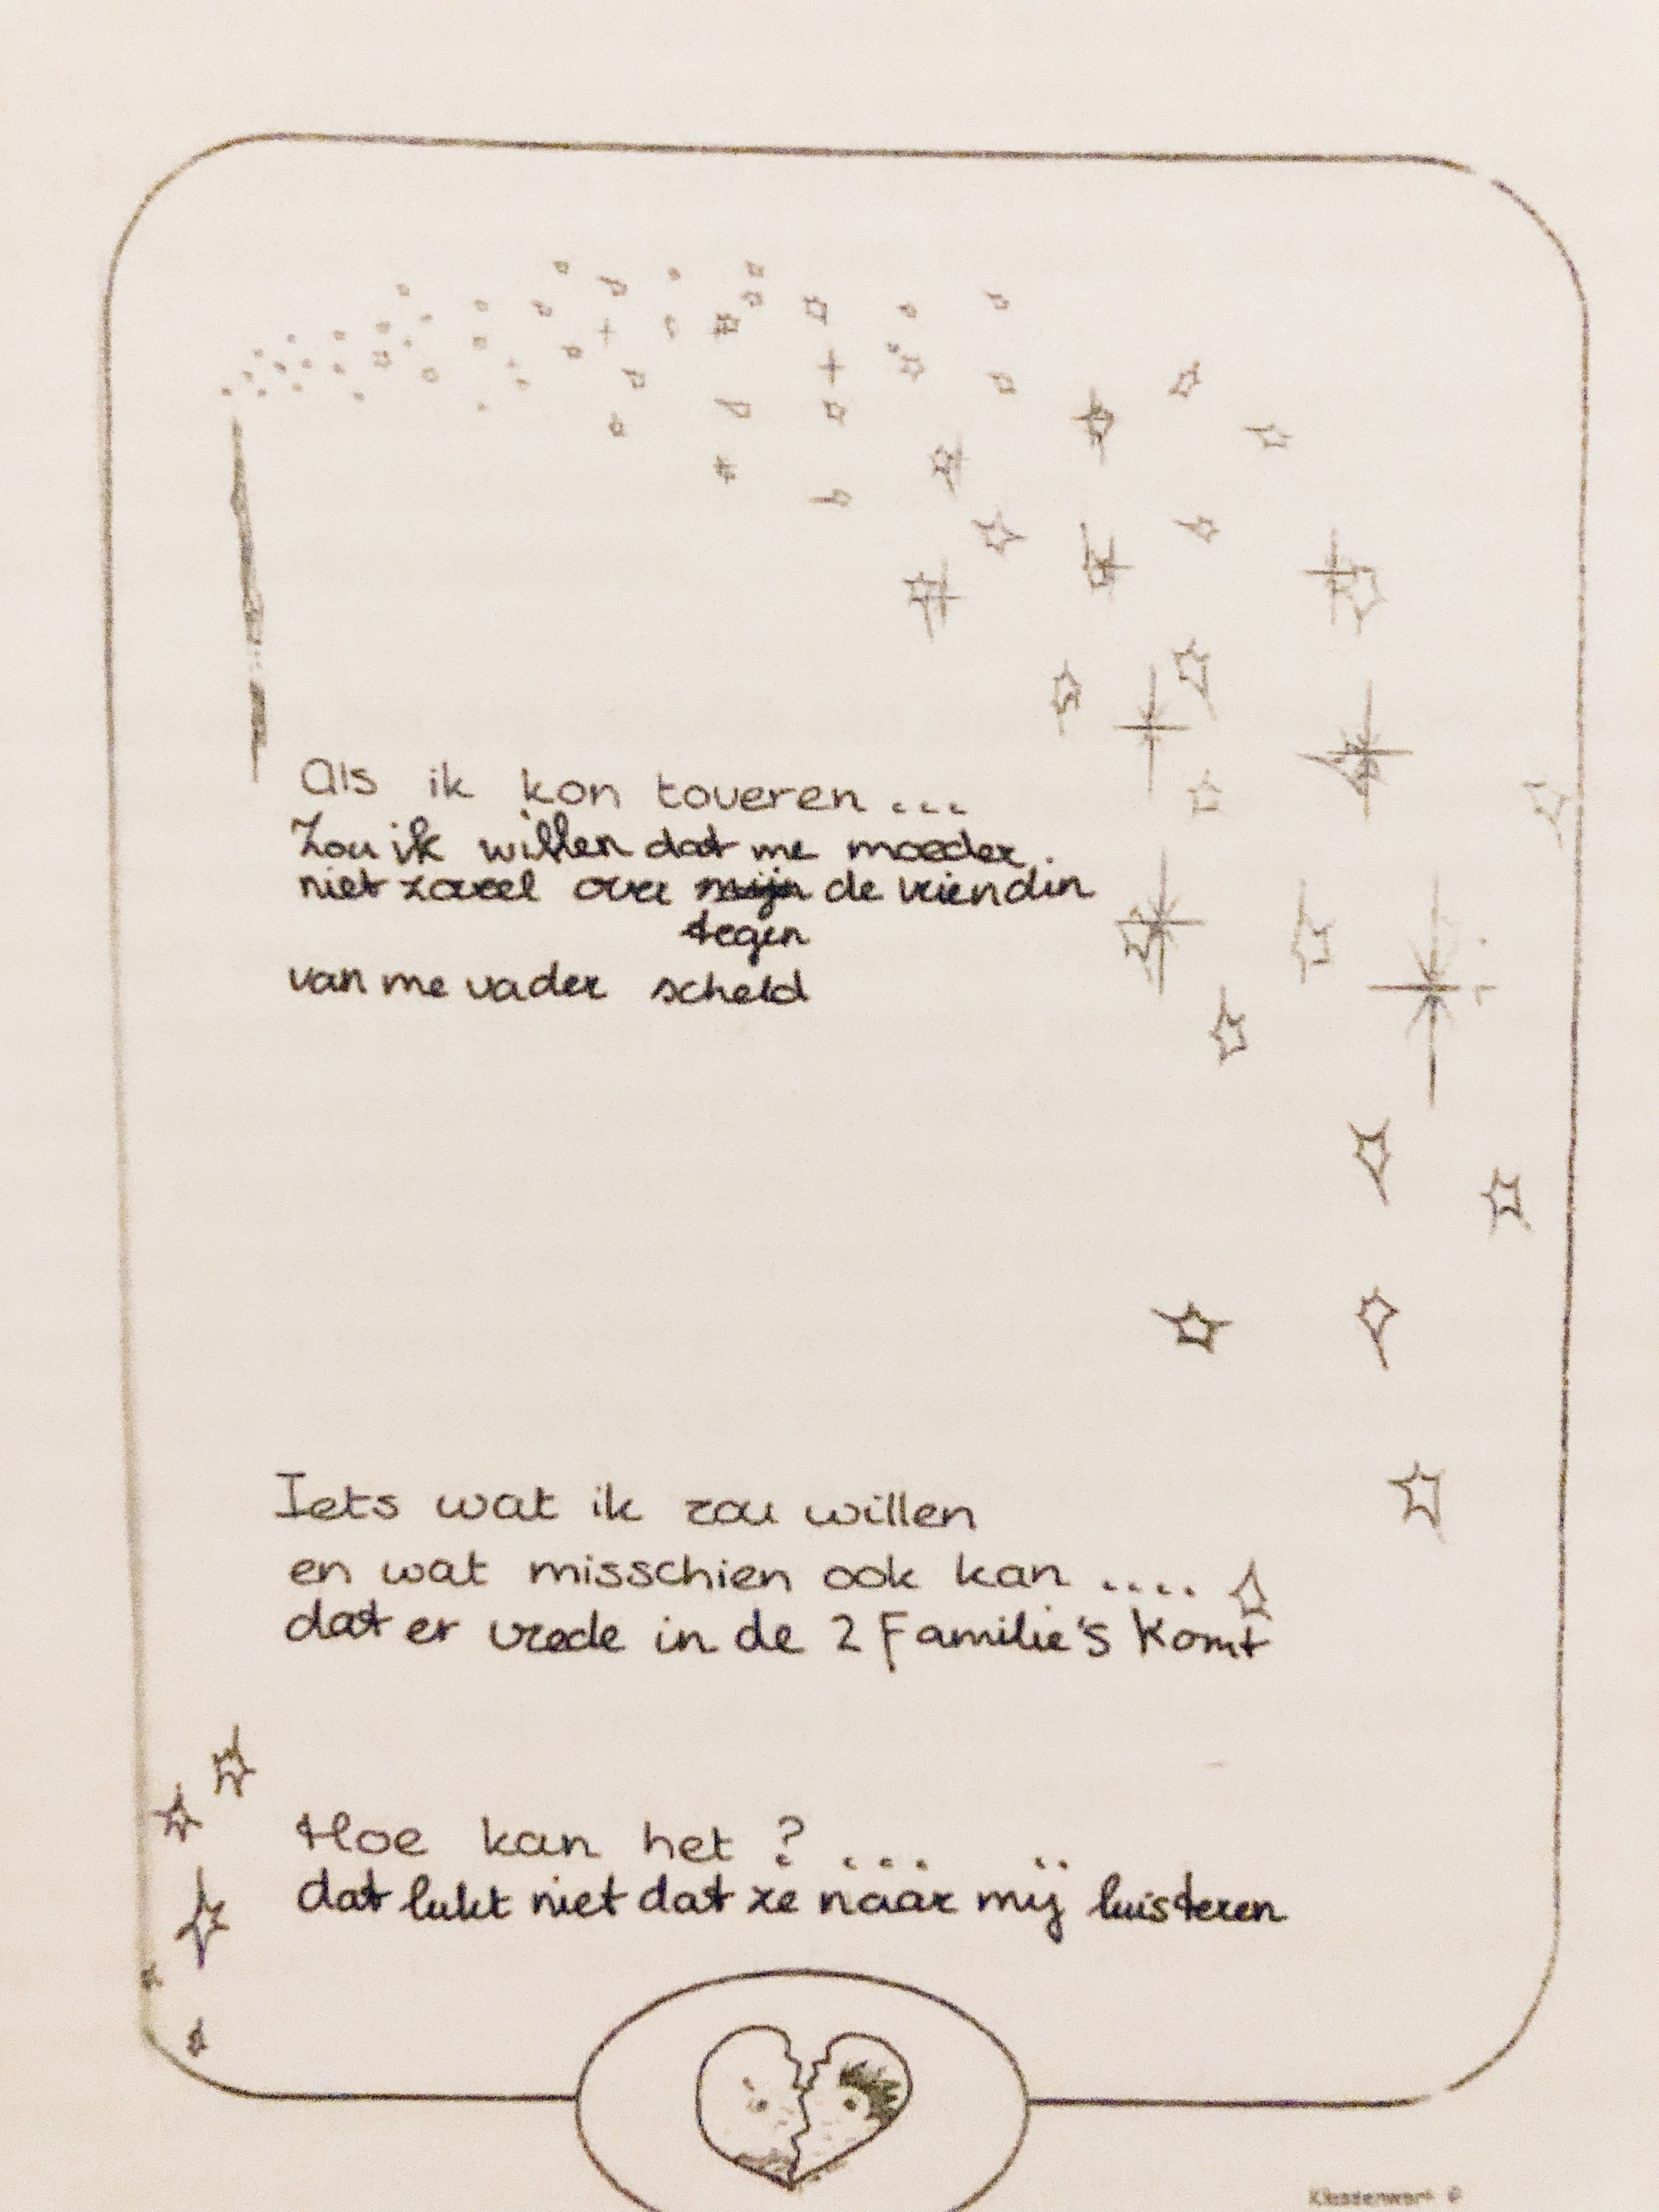 Als ik kon toveren ...
Zou ik willen dat me moeder
niet zoveel over de vriendin
tegen
van me vader scheld
Iets wat ik zou willen
en wat misschien ook kan ....
dat er vrede in de 2 Familie's Komt
Hoe kan het ? ...
dat lukt niet dat ze naar mij luisteren